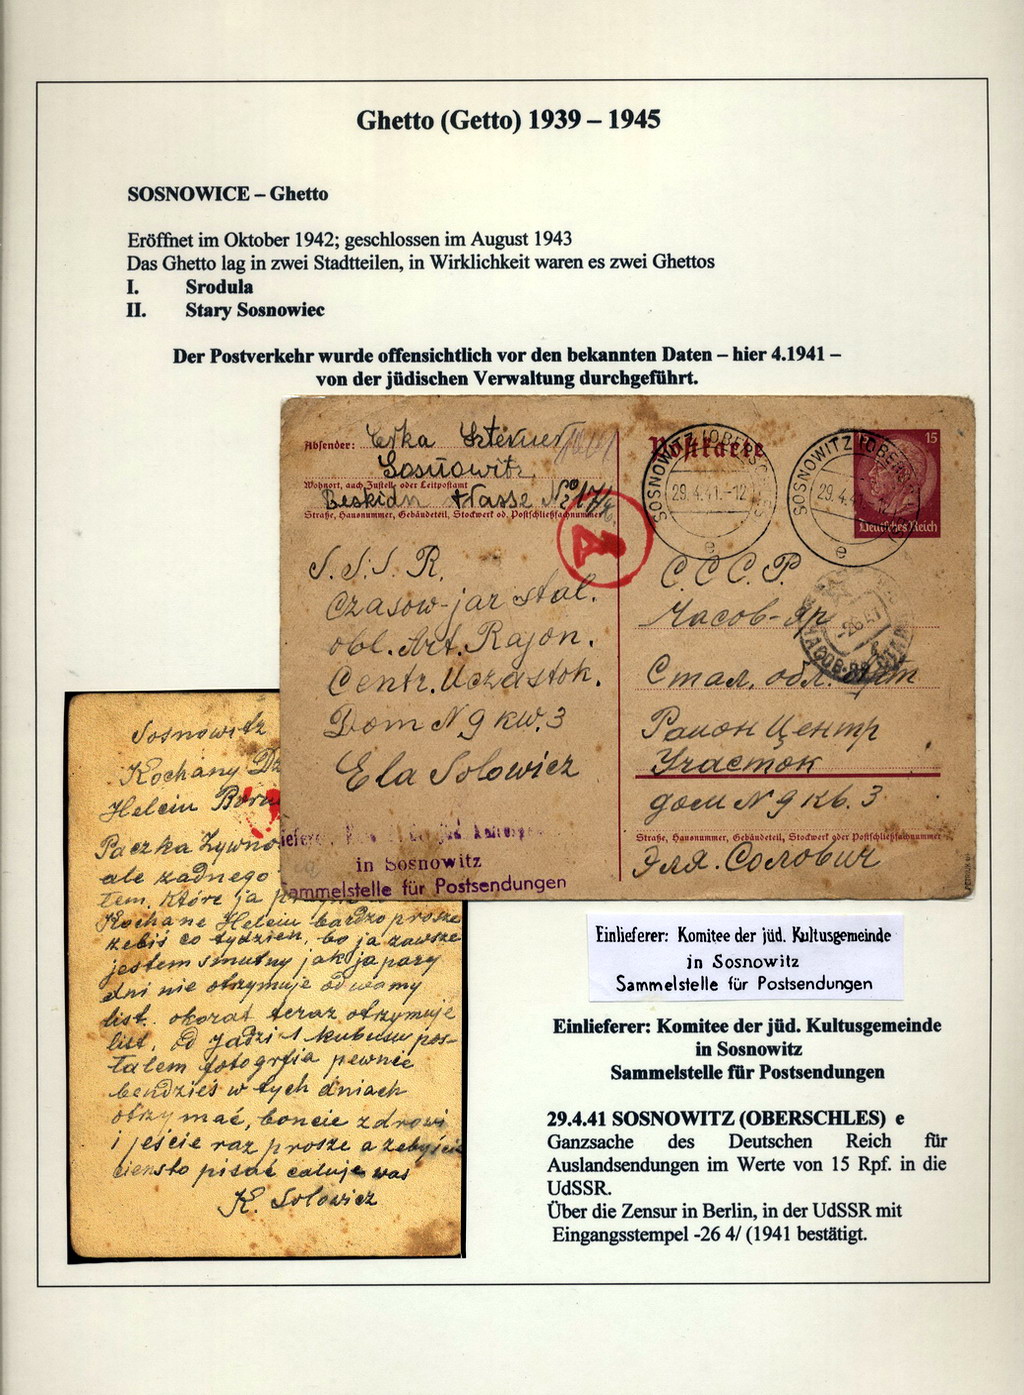 Ghetto (Getto) 1939 – 1945
SOSNOWICE – Ghetto
Eröffnet im Oktober 1942; geschlossen im August 1943
Das Ghetto lag in zwei Stadtteilen, in Wirklichkeit waren es zwei Ghettos
I. Srodula
II. Stary Sosnowiec
Der Postverkehr wurde offensichtlich vor den bekannten Daten – hier 4.1941 –
von der jüdischen Verwaltung durchgeführt.
Postkarte
Absender: Szterner
Sosnowitz
Wohnort, auch Zustell- oder Leitpostamt
Beskidn
Straße, Hausnummer, Gebäudeteil, Stockwerk od. Postschließfachnummer
SOSNOWITZ (OBERSCHLES)
29.4.41.-12
e
SOSNOWITZ (OBERSCHLES)
29.4.41.-12
e
15
Deutsches Reich
A
S.S.S.R.
Czasow-jar stal.
obl. Art. Rajon.
Centr. Uczastok.
Dom N 9 kw. 3
Ela Solowicz
С.С.С.Р.
Часов-яр
Стал. обл. Арт
Раион Центр
Участок
дом N 9 кв. 3
Straße, Hausnummer, Gebäudeteil, Stockwerk oder Postschließfachnummer
Эля. Солович
in Sosnowitz
Sammelstelle für Postsendungen
Sosnowitz
Kochany
Helciu
Paczka
ale żadnego
tem, które ja
Kochane Helciu bardzo prosze
żebiś co tydzień, bo ja zawsze
jestem smutny jak ja pary
dni nie otrzymuje od wamy
list. okorat teraz otrzymuje
list, od Jadzi i kubusu pos-
łałem fotogrfia pewnie
bendzieś w tych dniach
otrzymać, boncie zdrowi
i jeście raz prosze a żebyście
ciensto pisać całuje was
K. Solowicz
Einlieferer: Komitee der jüd. Kultusgemeinde
in Sosnowitz
Sammelstelle für Postsendungen
Einlieferer: Komitee der jüd. Kultusgemeinde
in Sosnowitz
Sammelstelle für Postsendungen
29.4.41 SOSNOWITZ (OBERSCHLES) e
Ganzsache des Deutschen Reich für
Auslandsendungen im Werte von 15 Rpf. in die
UdSSR.
Über die Zensur in Berlin, in der UdSSR mit
Eingangsstempel -26 4/ (1941 bestätigt.